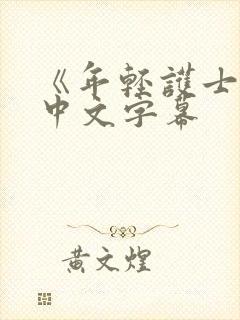 《年轻護士
中文字幕
黄文煌